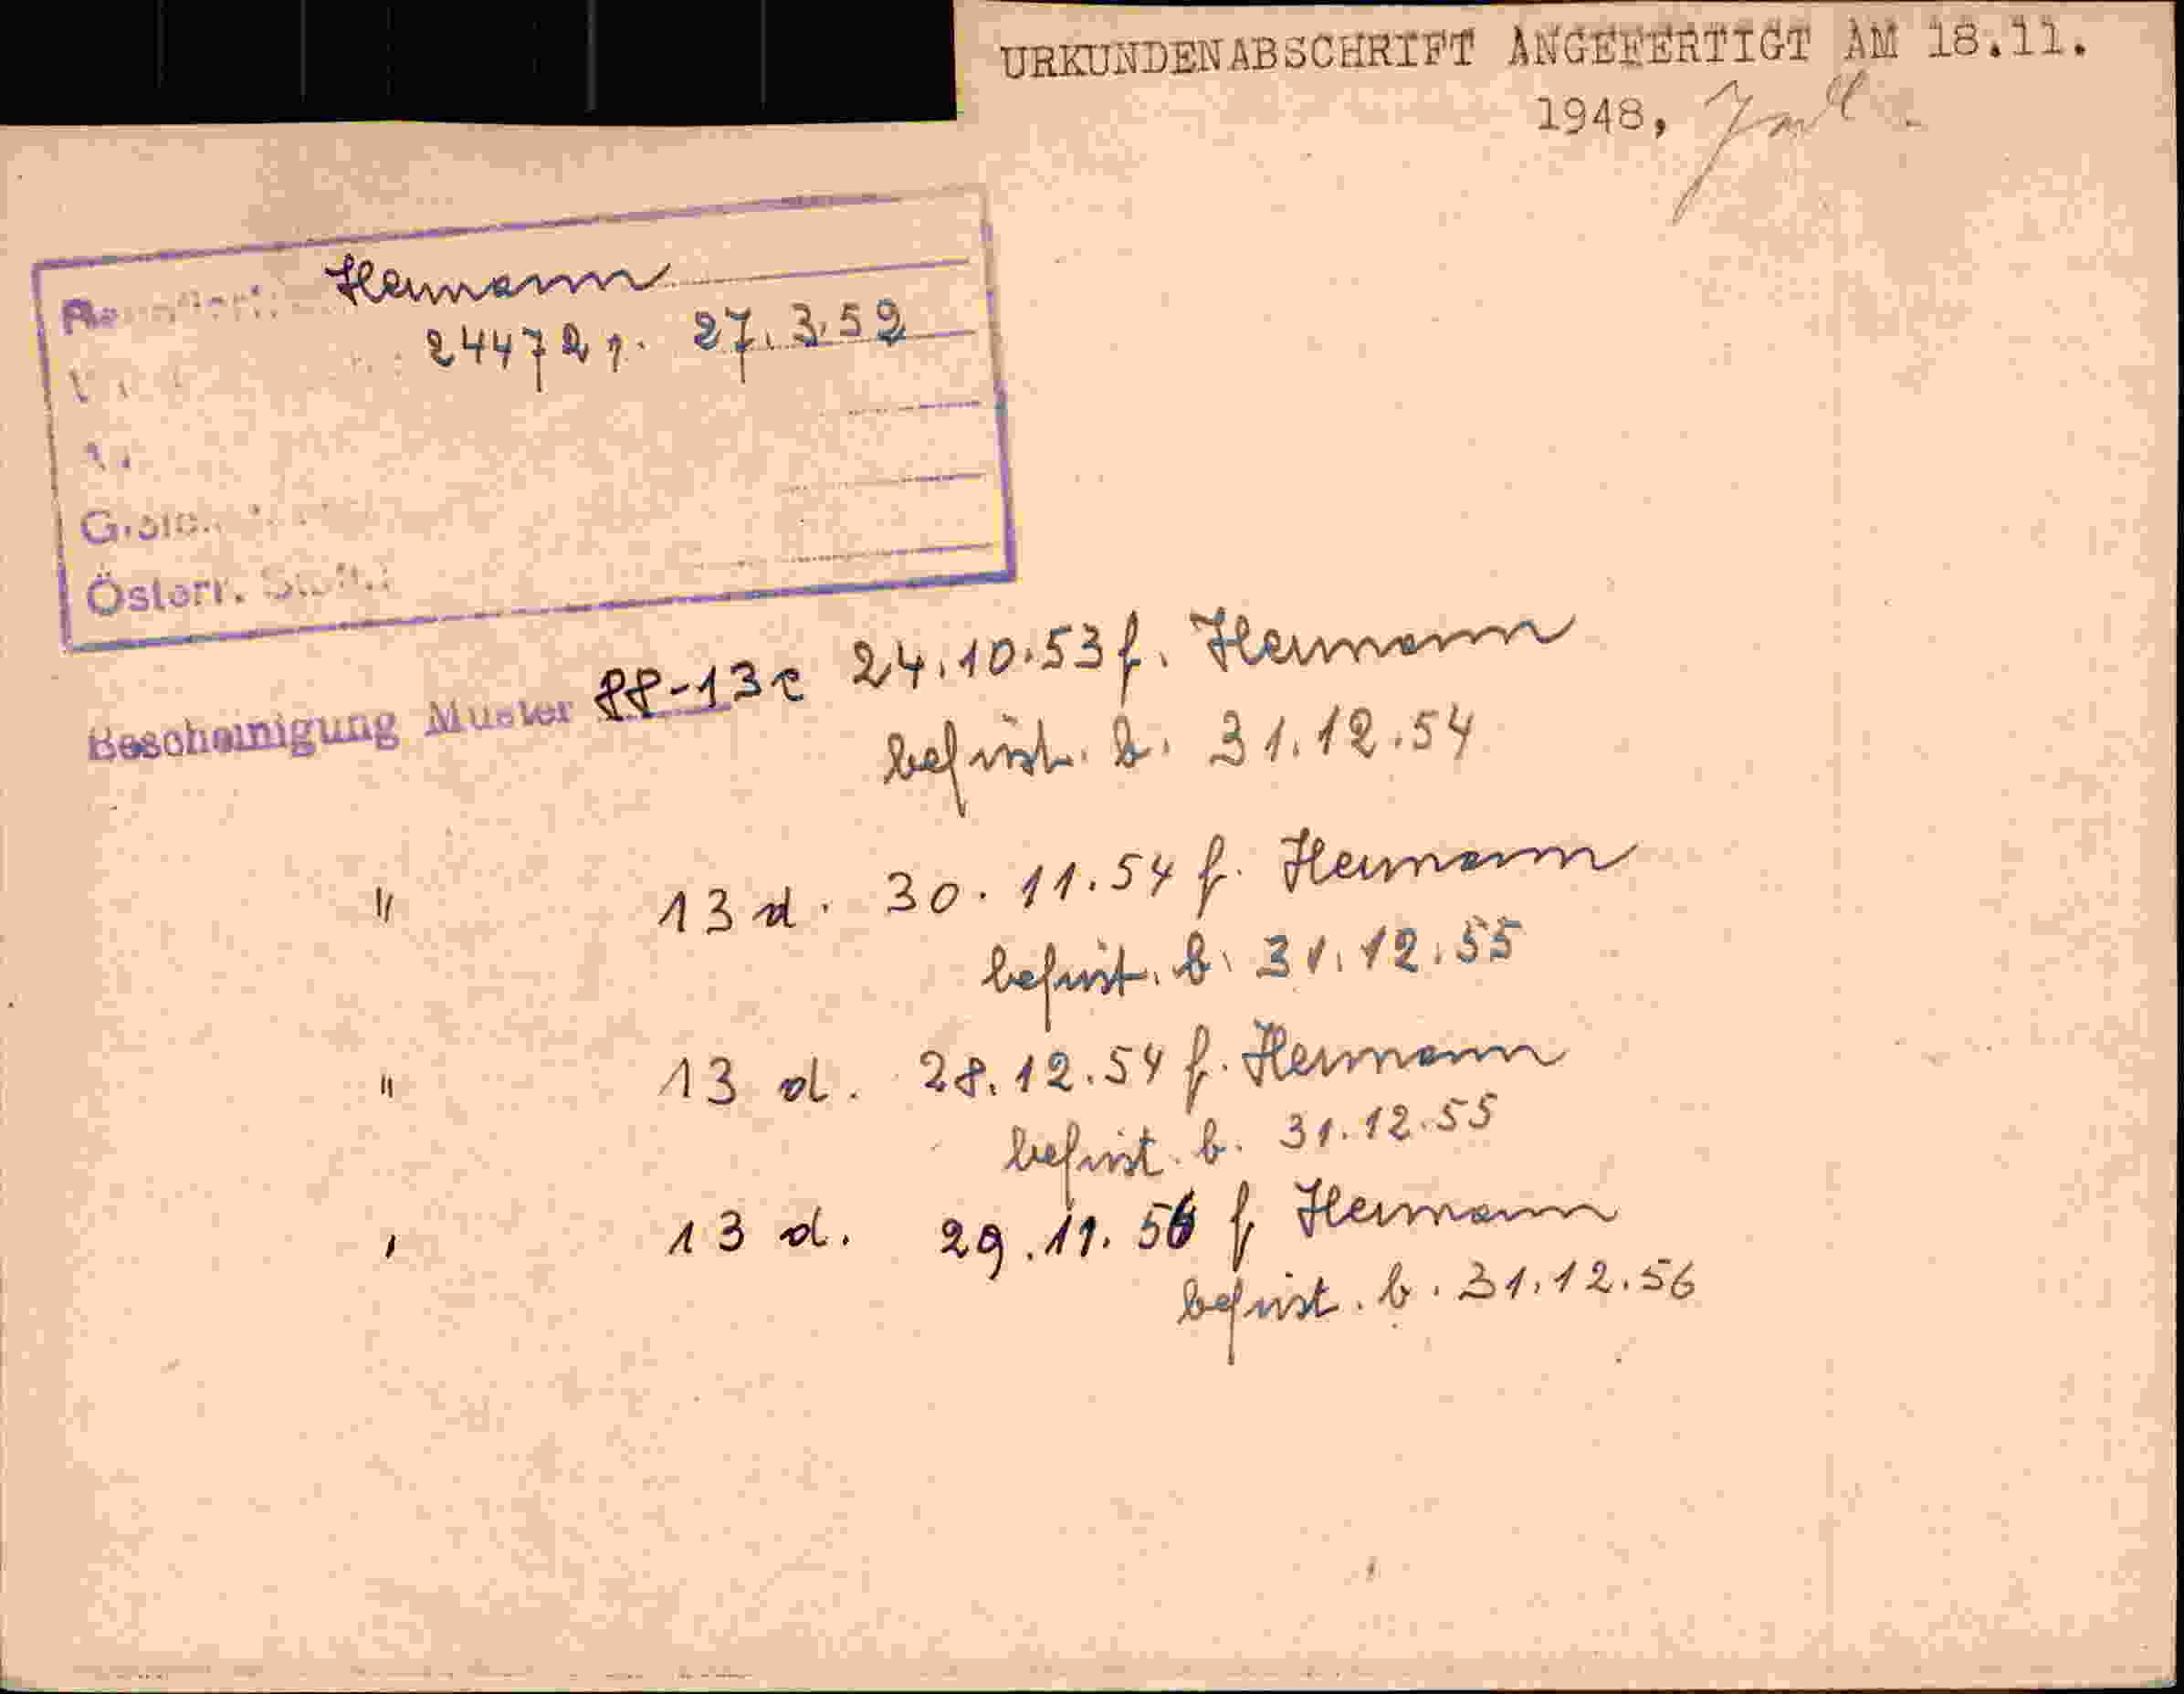 URKUNDENABSCHRIFT ANGEFERTIGT AM 18.11.
1948,
Hermann
24472 v. 27.3.52
Österr.
Bescheinigung Muster 88-13c 24.10.53 f. Hermann
befrist. b. 31.12.54
" 13 d. 30.11.54 f. Hermann
befrist. b. 31.12.55
" 13 d. 28.12.54 f. Hermann
befrist. b. 31.12.55
" 13 d. 29.11.56 f Hermann
befrist. b. 31.12.56